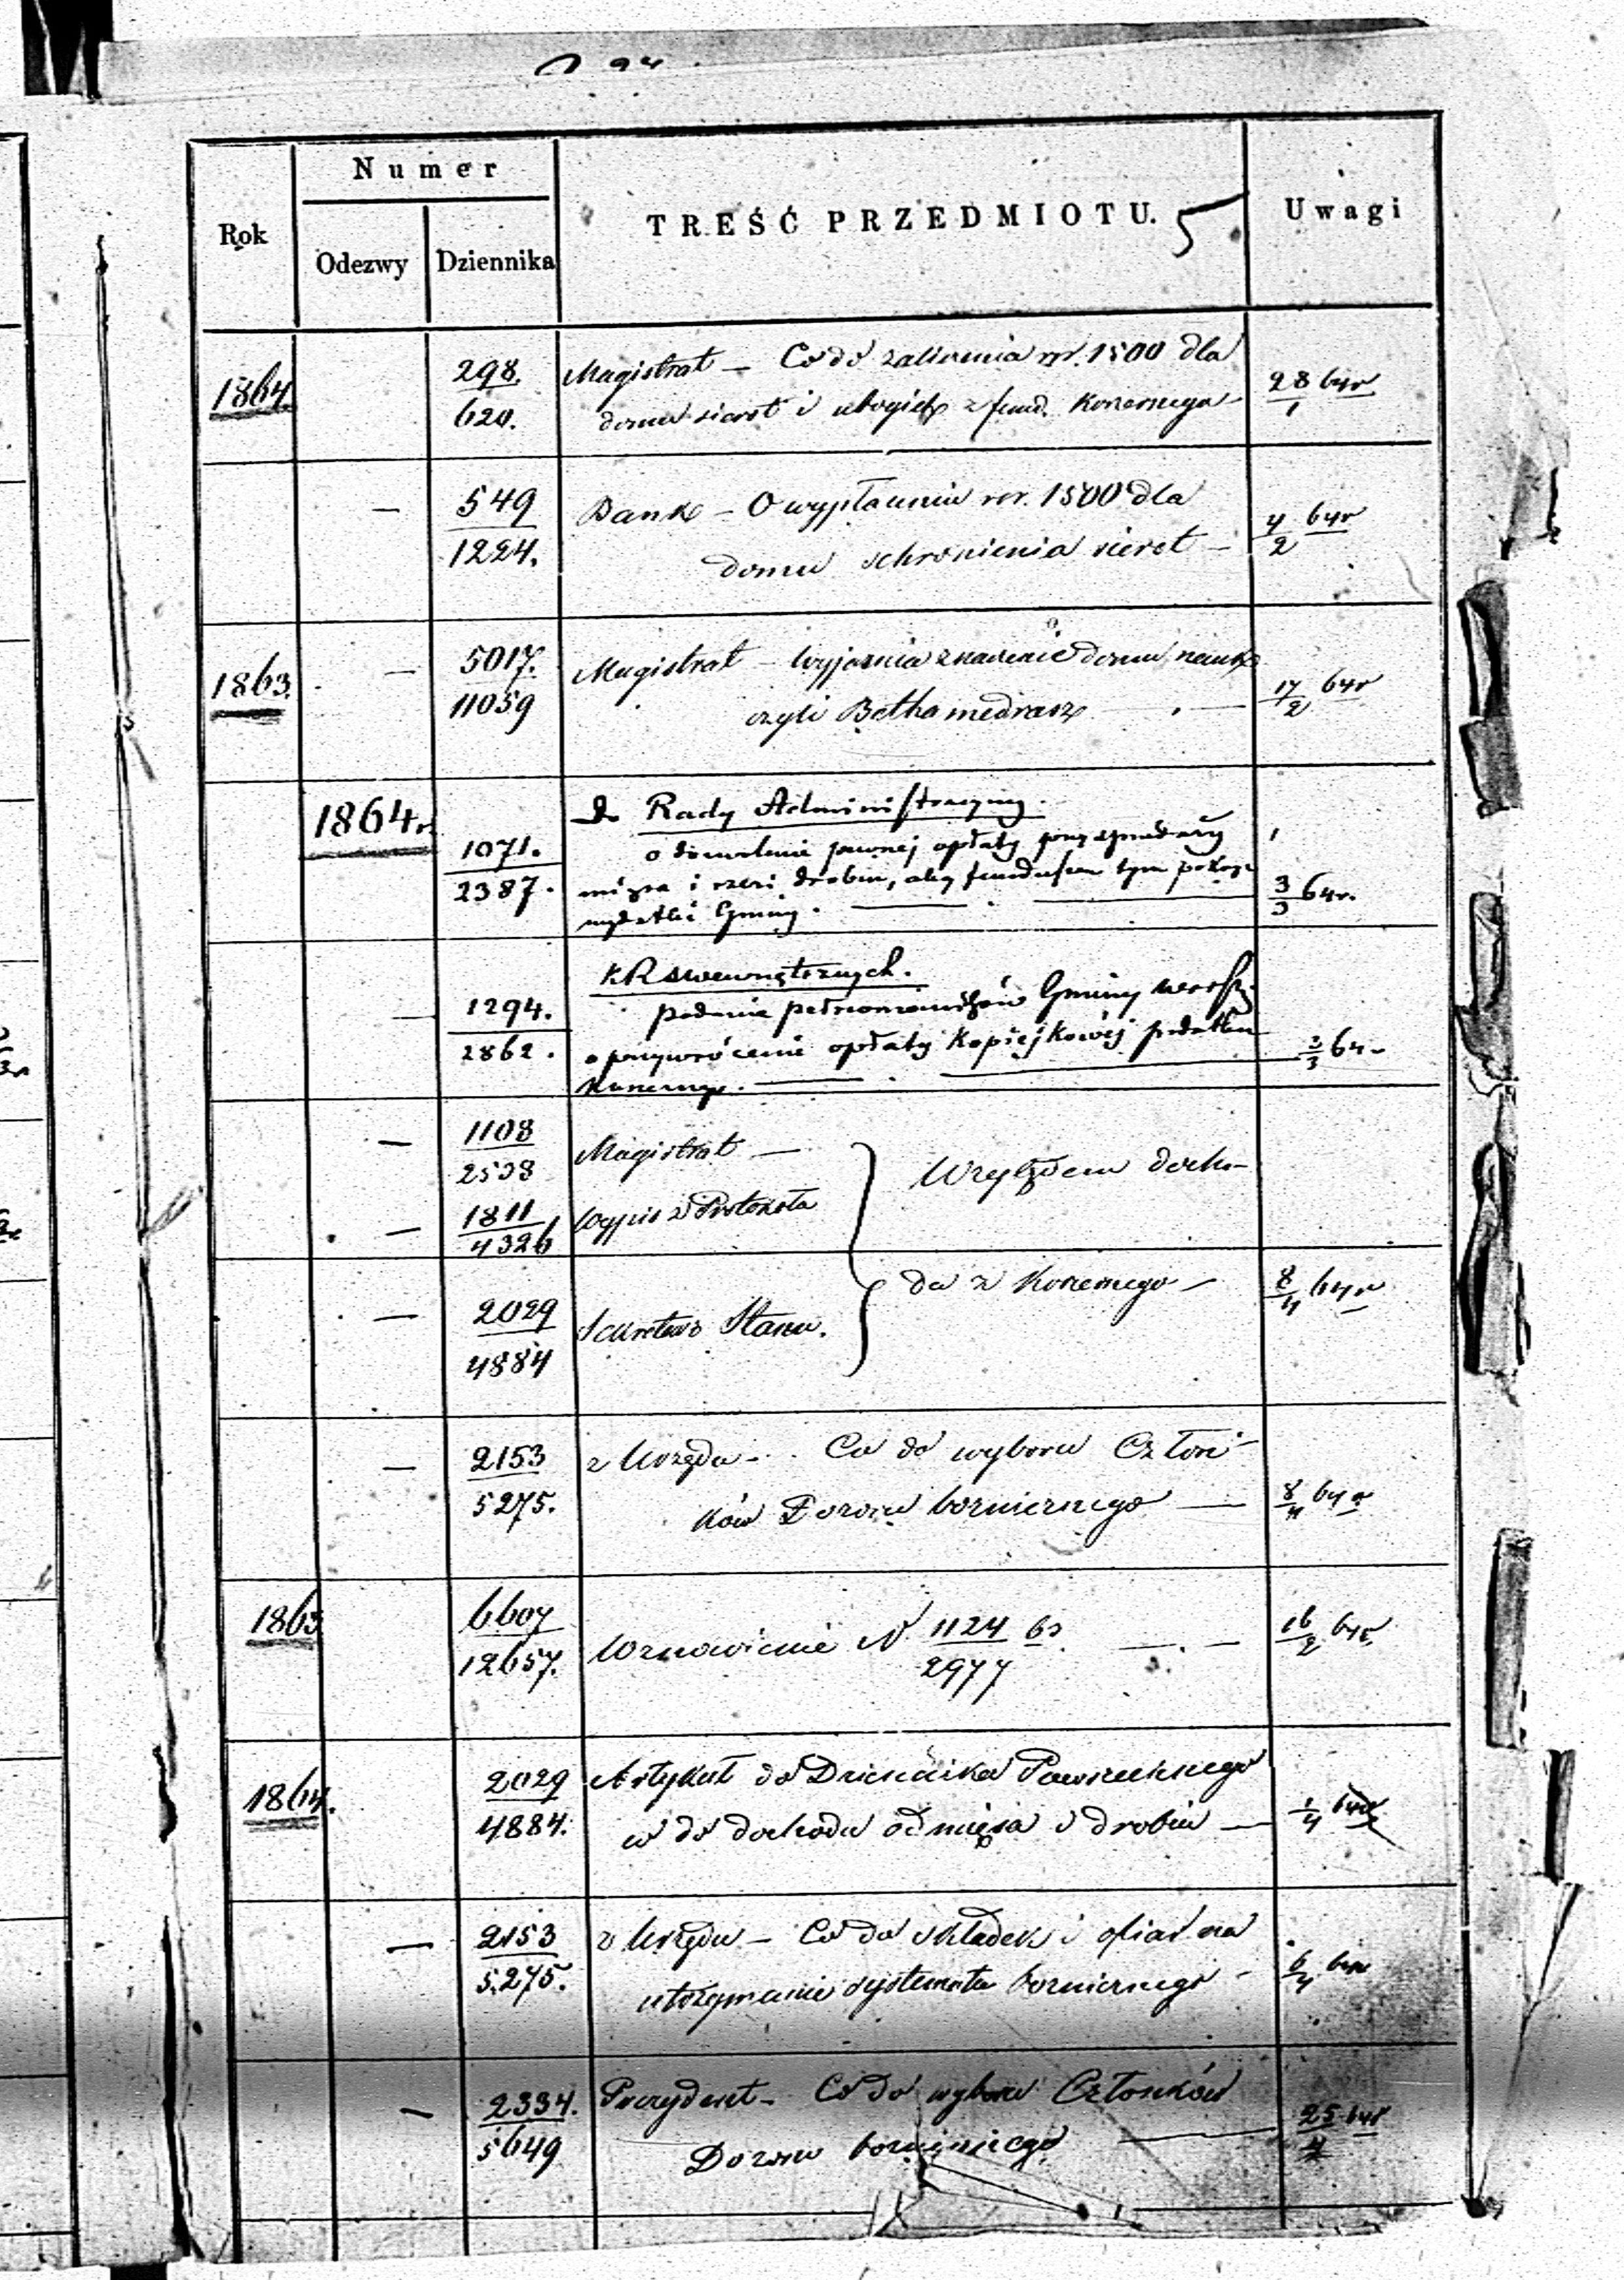 94
Numer
Rok
Odezwy
Dziennika
TREŚĆ PRZEDMIOTU. 5
Uwagi
1864.
298.
620.
Magistrat — Co do zaliczenia rsr. 1500 dla
domu sierot i ubogich z fund. Koszernego
28/1 64r
—
549
1224.
Bank — O wypłacenie rsr. 1500 dla
domu schronienia sierot —
4/2 64r
1863.
—
5017.
11059
Magistrat — Wyjaśnia znaczenie domu nauk
czyli Bethamedrasz —
17/2 64r
1864r.
1071.
2387.
do Rady Administracyjnej.
o dozwolenie pewnej opłaty przy sprzedaży
mięsa i rzezi drobiu, aby funduszem tym pokryć
wydatki Gminy.
3/3 64r.
—
1294.
2862.
KRSwewnętrznych.
podanie pełnomocników Gminy warsz.
o przywrócenie opłaty Kopiejkowej podatku
Koszernego.
3/3 64
—
1108
2538
Magistrat —
—
1811
4326
Wypis z Protokołu
Względem docho-
—
2029
4884
Sekretarz Stanu.
du z Koszernego —
8/4 64r
—
2153
5275.
z Urzędu — Co do wyboru Człon-
ków Dozoru bożniczego —
8/4 64r
1863
6607
12657.
Wznowienie N 1124/2977 63.
16/2 64r.
1864.
2029
4884.
Artykuł do Dziennika Powszechnego
co do dochodu od mięsa i drobiu —
1/4 64r
—
2153
5275.
z Urzędu — Co do składek i ofiar na
utrzymanie systemata bożniczego —
6/4 64r
—
2334.
5649
Prezydent — Co do wyboru Członków
Dozoru bożniczego
25/4 64r